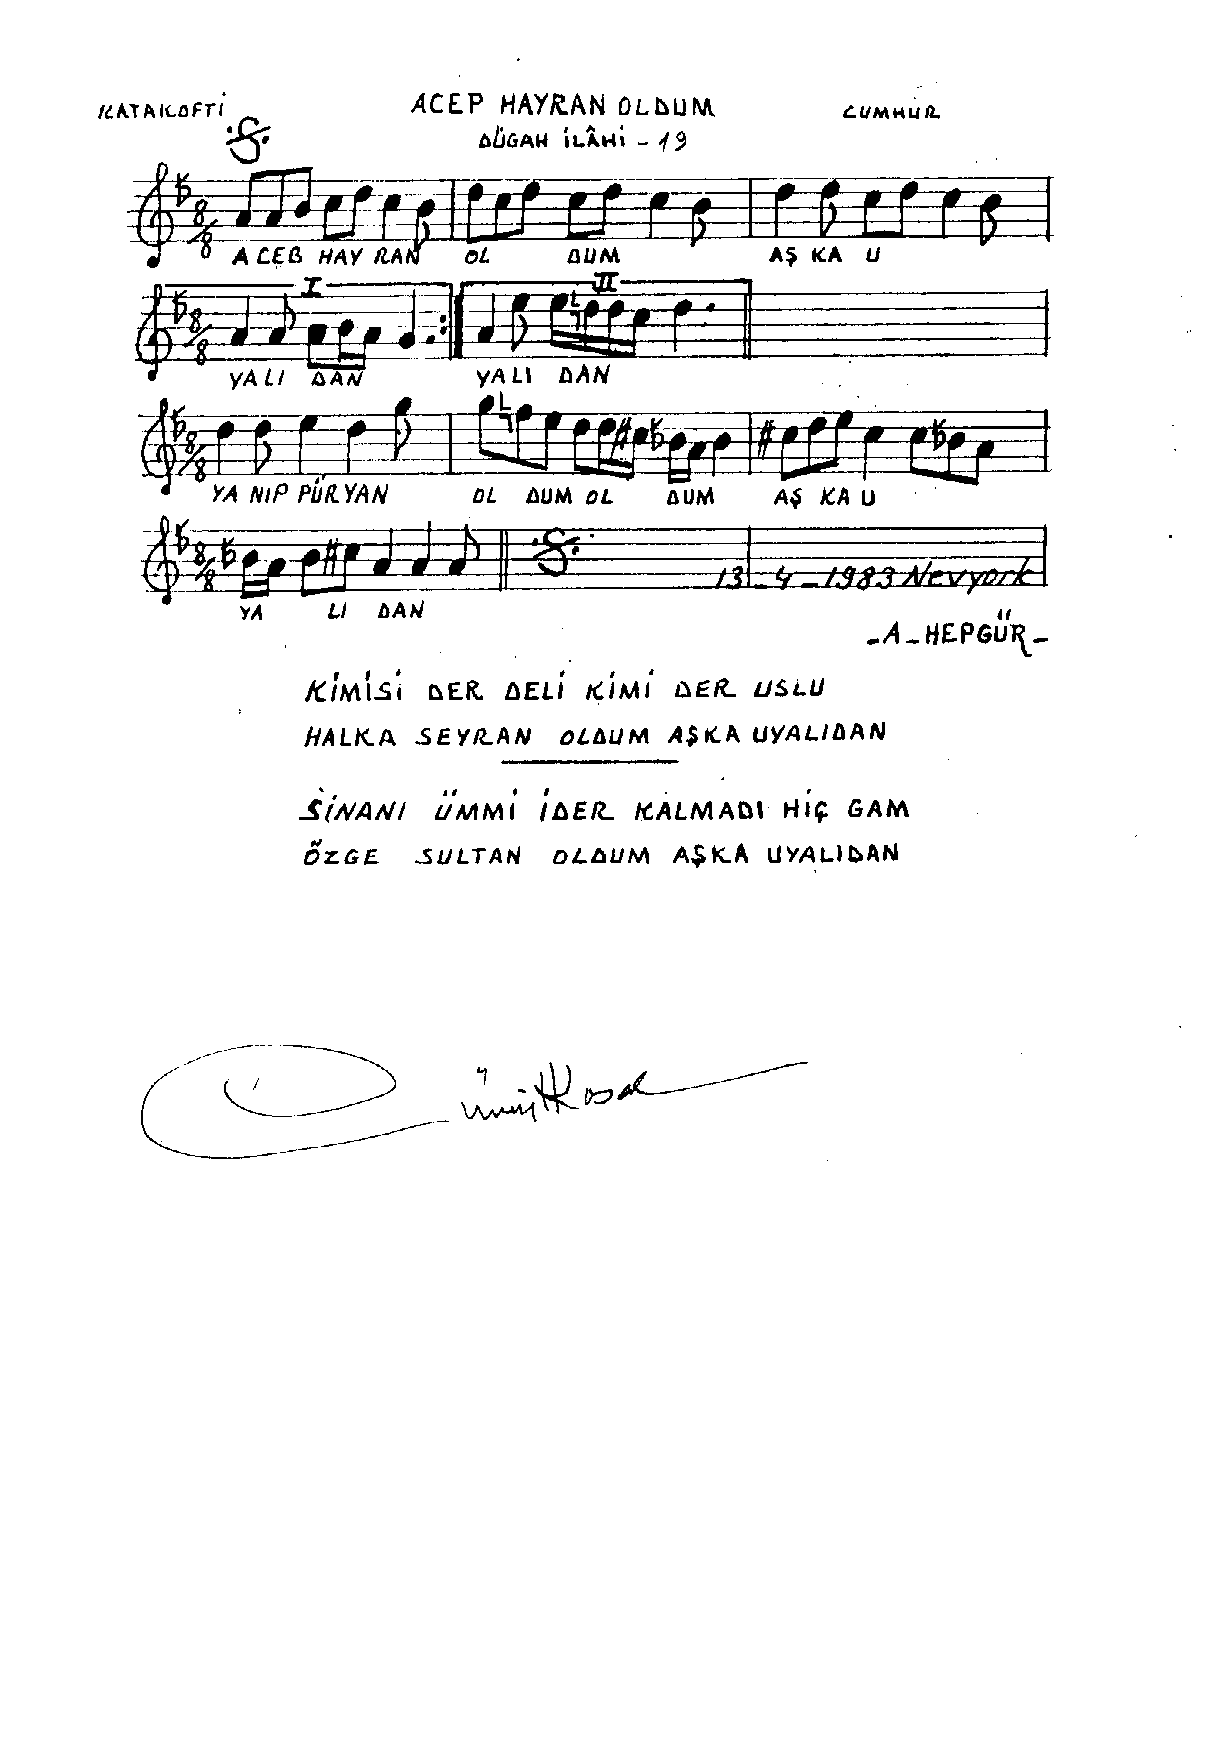 KATAKOFTİ
ACEP HAYRAN OLDUM
CUMHUR
DÜGAH İLÂHİ - 19
8/8
A CEB HAY RAN OL DUM AŞ KA U
I II
8/8
YA LI DAN YA LI DAN
8/8
YA NIP PÜR YAN OL DUM OL DUM AŞ KA U
8/8
13-4-1983 Nevyork
YA LI DAN
-A-HEPGÜR-
KİMİSİ DER DELİ KİMİ DER USLU
HALKA SEYRAN OLDUM AŞKA UYALIDAN
SİNANI ÜMMİ İDER KALMADI HİÇ GAM
ÖZGE SULTAN OLDUM AŞKA UYALIDAN